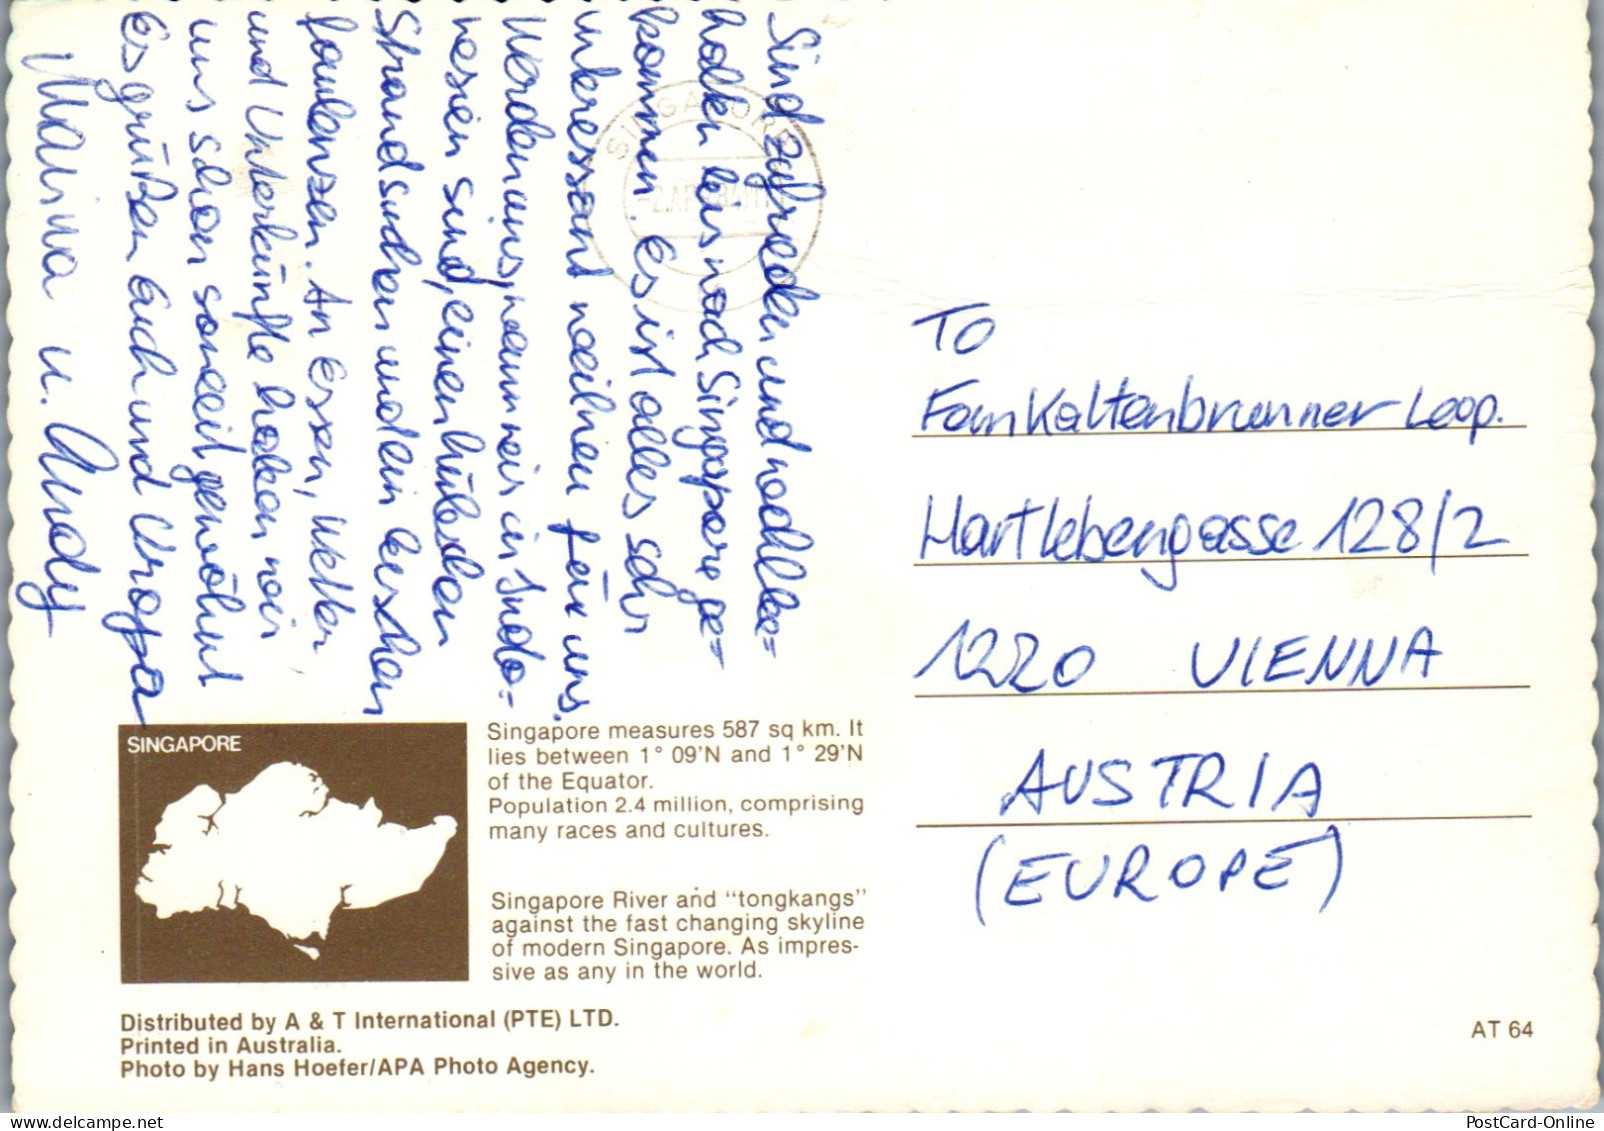 Sind zufrieden und wohlbe=
halten bis nach Singapore ge=
kommen. Es ist alles sehr
interessant weilnen für uns.
Werden uns, wenn wir in Indo-
nesien sind, einen hübschen
Strand suchen und ein bisschen
faulenzen. An Essen, Wetter
und Unterkünfte haben wir
uns schon soweit gewöhnt
Es grüßen Euch und Uropa
Marina u. Andy
SINGAPORE
To
Fam Kaltenbrunner Leop.
Hartlebengasse 128/2
1220 VIENNA
AUSTRIA
(EUROPE)
SINGAPORE
Singapore measures 587 sq km. It
lies between 1° 09'N and 1° 29'N
of the Equator.
Population 2.4 million, comprising
many races and cultures.
Singapore River and "tongkangs"
against the fast changing skyline
of modern Singapore. As impres-
sive as any in the world.
Distributed by A & T International (PTE) LTD.
Printed in Australia.
Photo by Hans Hoefer/APA Photo Agency.
AT 64
delcampe.net
PostCard-Online